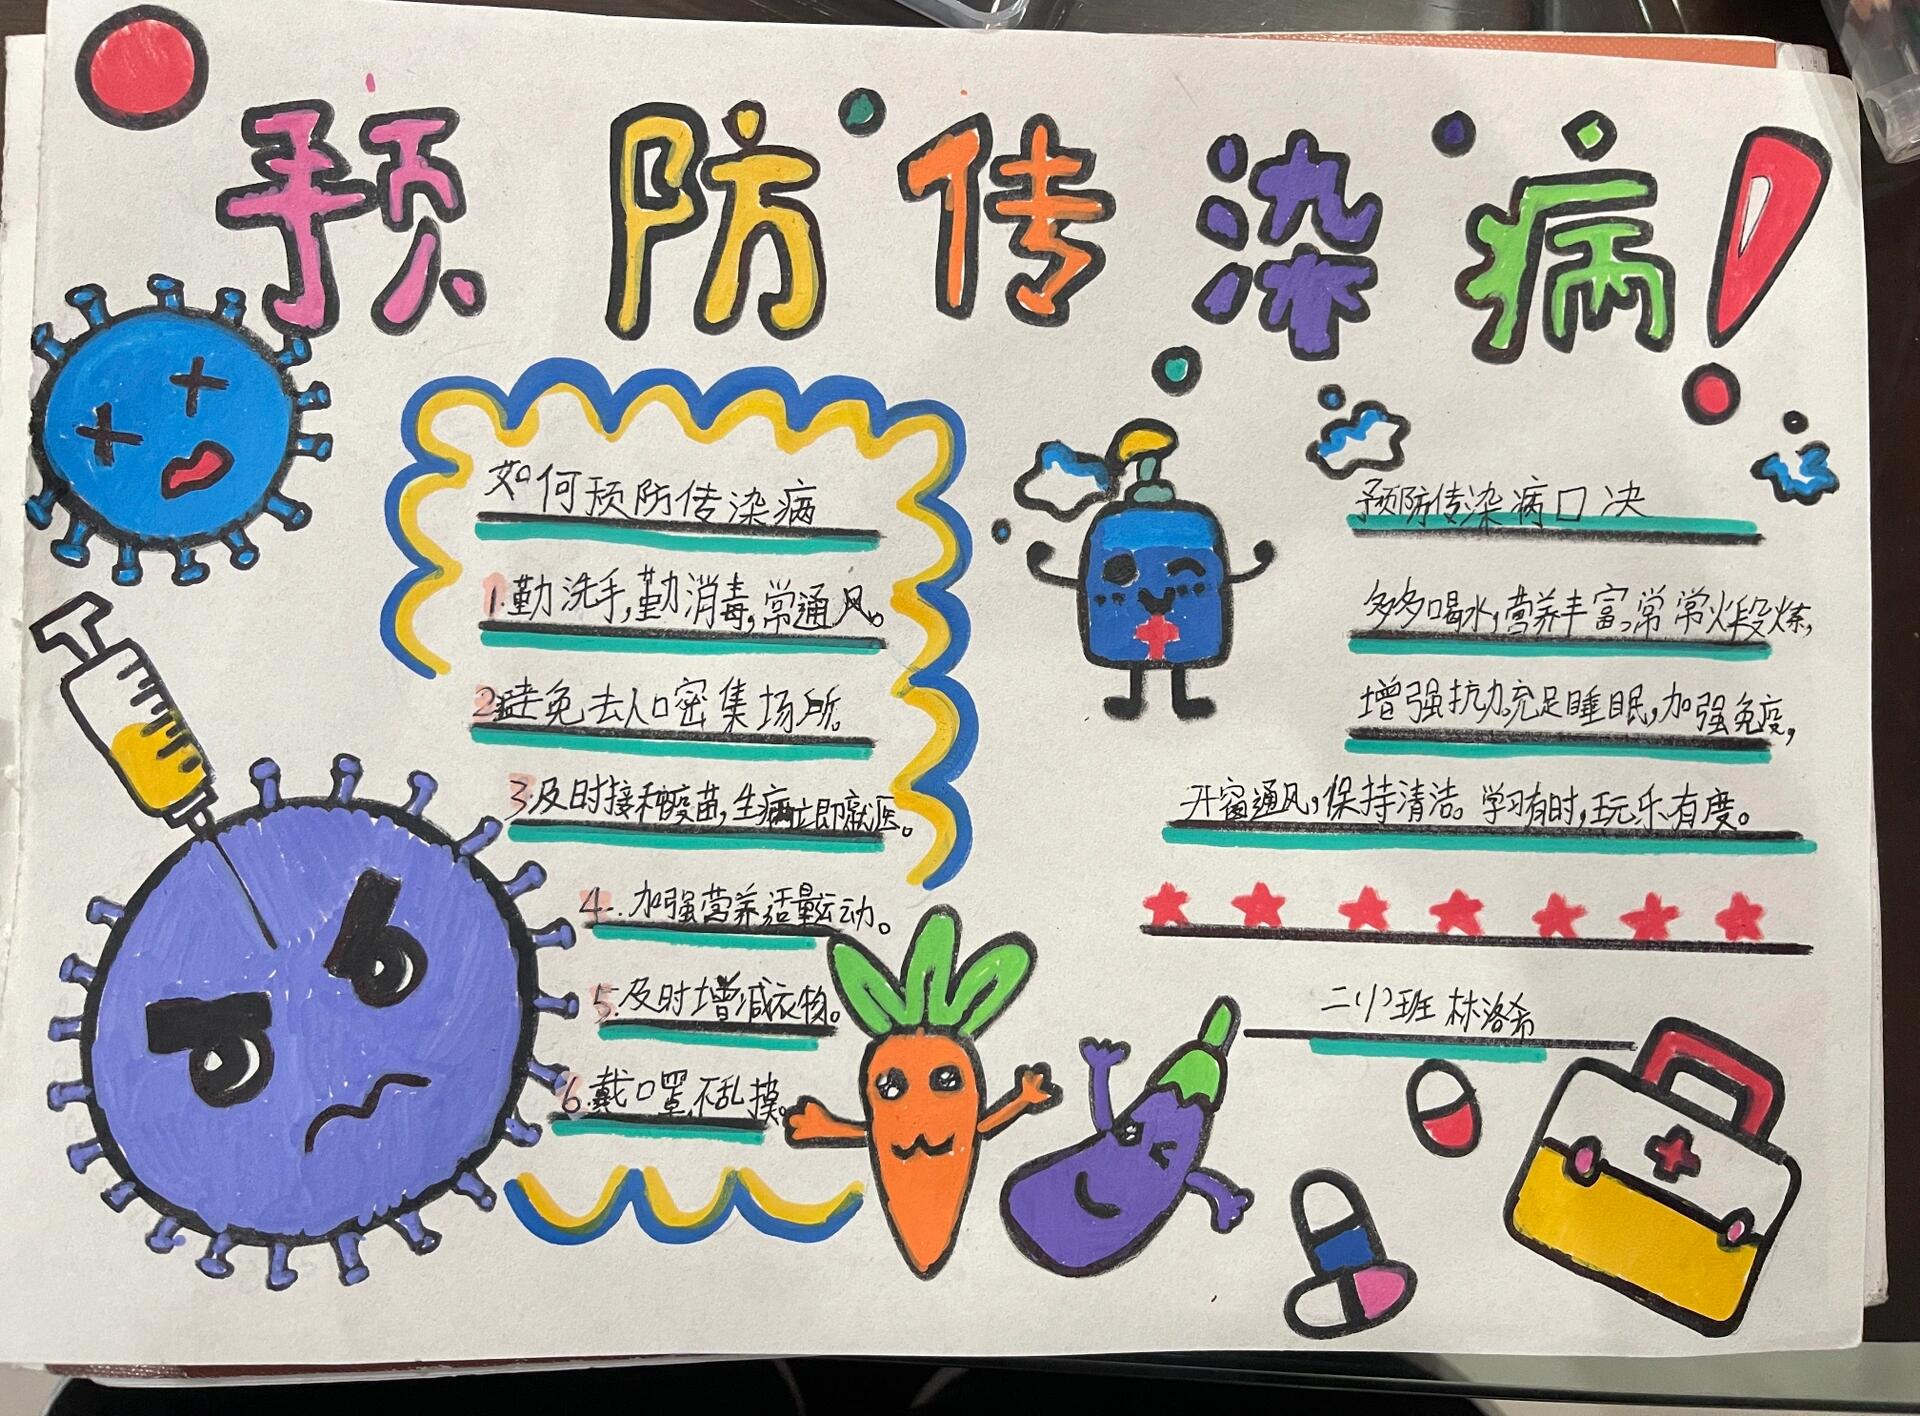 预防传染病!
如何预防传染病
1.勤洗手,勤消毒,常通风。
2避免去人口密集场所。
3.及时接种疫苗,生病立即就医。
4.加强营养适量运动。
5.及时增减衣物。
6.戴口罩,不乱摸。
预防传染病口决
多多喝水,营养丰富,常常火段炼,
增强抗力,充足睡眠,加强免疫,
开窗通风,保持清洁。学习有时,玩乐有度。
二(1)班 林洛希